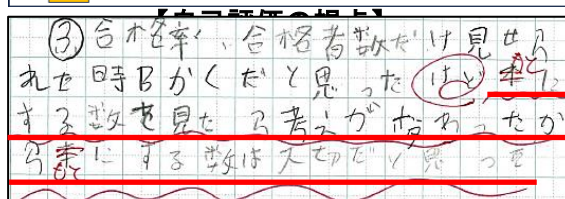 【自己評価の視点】
③合格率、合格者数だけ見せら
れた時Bかくだと思ったけど本に
もと
する数を見たら考えが変わったか
ら本にする数は大切だと思った
もと